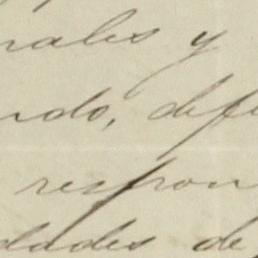 nales y
ndo, defe
respon
dades de